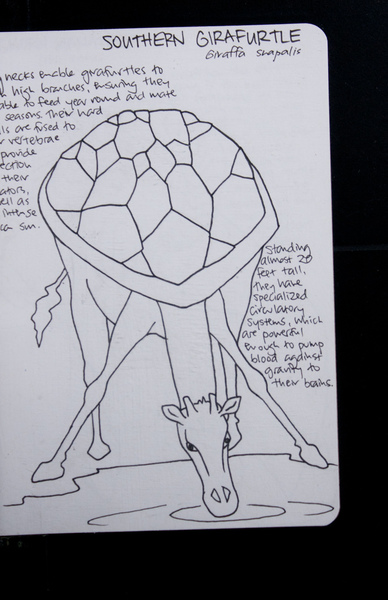 SOUTHERN GIRAFURTLE
Giraffa snapalis
necks enable girafurtles to
high branches, ensuring they
able to feed year round and mate
seasons. Their hard
are fused to
vertebrae
provide
their
as
intense
sun.
Standing
almost 20
feet tall,
they have
specialized
circulatory
systems, which
are powerful
enough to pump
blood against
gravity to
their brains.